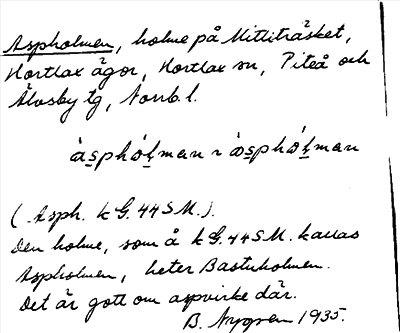 Aspholmen, holme på Mittiträsket,
Hortlax ägor, Hortlax sn, Piteå och
Älvsby tg, Norrb. l.
àsphólman ~ àsphólman
(Asph. k G. 44 S M.).
Den holme, som å k G. 44 S M. kallas
Aspholmen, heter Bastuholmen.
Det är gott om aspvirke där.
B. Nygren 1935.